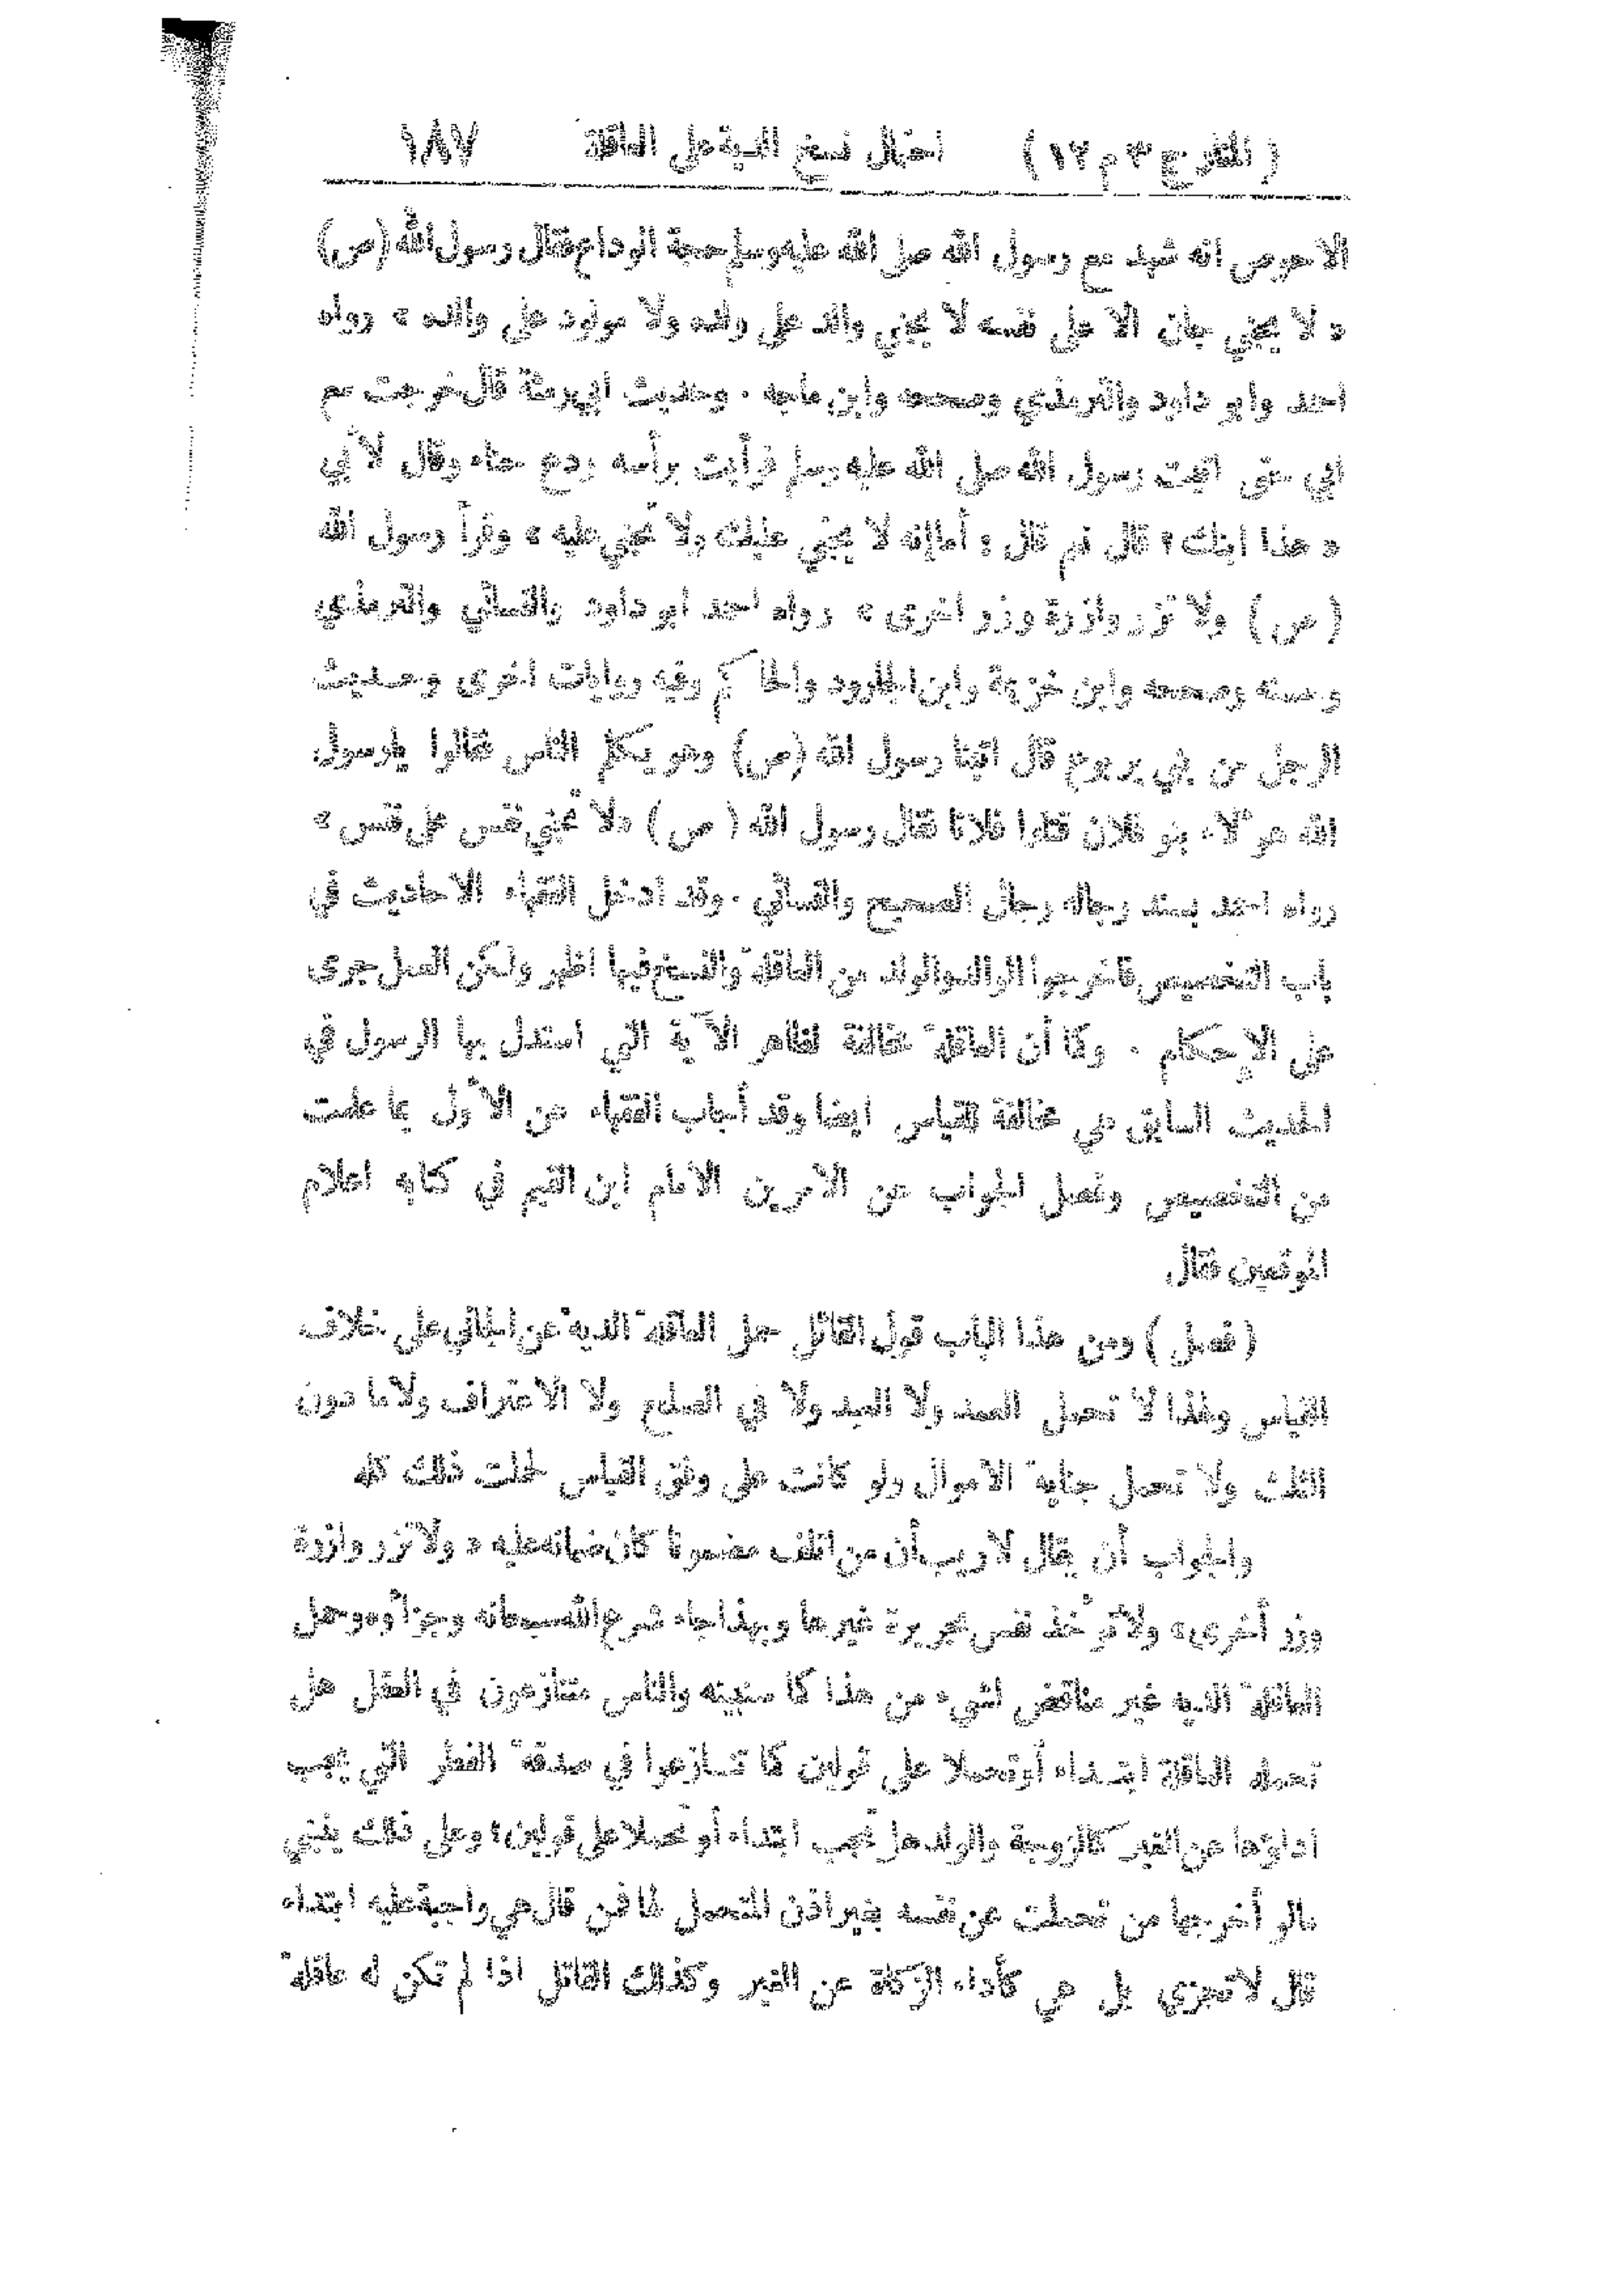 ( المنار ج ٣ م ١٢ ) احتمال نسخ الدية على العاقلة ١٨٧
الاحوص انه شهد مع رسول الله صلى الله عليه وسلم حجة الوداع فقال رسول الله (ص)
« لا يجني جان الا على نفسه لا يجني والد على ولده ولا مولود على والده » رواه
احمد وابو داود والترمذي وصححه وابن ماجه . وحديث ابي رمثة قال خرجت مع
ابي حتى اتيت رسول الله صلى الله عليه وسلم فرأيت برأسه ردع حناء وقال لأبي
« هذا ابنك ؟ قال نعم قال : أما إنه لا يجني عليك ولا تجني عليه » وقرأ رسول الله
( ص ) ولا تزر وازرة وزر اخرى » رواه احمد ابو داود والنسائي والترمذي
وحسنه وصححه وابن خزيمة وابن الجارود والحاكم وفيه روايات اخرى وحديث
الرجل من بني يربوع قال اتينا رسول الله (ص) وهو يكلم الناس فقالوا يا رسول
الله هؤلاء بنو فلان قتلوا فلانا فقال رسول الله ( ص ) « لا تجني نفس على نفس »
رواه احمد بسند رجاله رجال الصحيح والنسائي . وقد ادخل الفقهاء الاحاديث في
باب التخصيص فاخرجوا الوالد والولد من العاقلة والنسخ فيها اظهر ولكن العمل جرى
على الإحكام . وكما أن العاقلة مخالفة لظاهر الآية التي استدل بها الرسول في
الحديث السابق هي مخالفة للقياس ايضا وقد أجاب الفقهاء عن الأول بما علمت
من التخصيص وفصل الجواب عن الأمرين الامام ابن القيم في كتابه اعلام
الموقعين فقال
( فصل ) ومن هذا الباب قول القائل حمل العاقلة الدية عن الجاني على خلاف
القياس ولهذا لا تحمل العمد ولا العبد ولا في الصلح ولا الاعتراف ولا ما دون
الثلث ولا تحمل جناية الاموال ولو كانت على وفق القياس لحملت ذلك كله
والجواب أن يقال لا ريب أن من اتلف مضمونا كان ضمانه عليه « ولا تزر وازرة
وزر أخرى » ولا تؤخذ نفس بجريرة غيرها وبهذا جاء شرع الله سبحانه وجزاؤه وحمل
العاقلة الدية غير مناقض لشيء من هذا كما سنبينه والناس متنازعون في العقل هل
تحمله العاقلة ابتداء أو تحملا على قولين كما تنازعوا في صدقة الفطر التي يجب
اداؤها عن الغير كالزوجة والولد هل تجب ابتداء أو تحملا على قولين ؟ وعلى ذلك ينبني
مالو أخرجها من تحملت عن نفسه بغير اذن المتحمل لها فمن قال هي واجبة عليه ابتداء
قال لا تجزي بل هي كأداء الزكاة عن الغير وكذلك القاتل اذا لم تكن له عاقلة